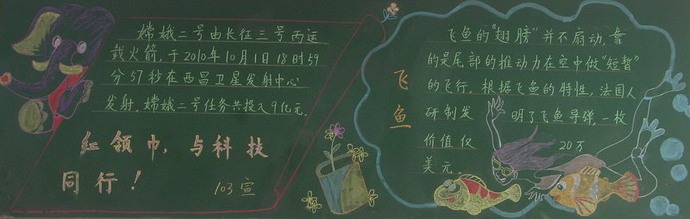 嫦娥二号由长征三号丙运
载火箭，于2010年10月1日18时59
分57秒在西昌卫星发射中心
发射，嫦娥二号任务共投入9亿元。
红领巾，与科技
同行！
103宣
飞鱼
飞鱼的“翅膀”并不扇动，靠
的是尾部的推动力在空中做“短暂”
的飞行。根据飞鱼的特性，法国人
研制发明了飞鱼导弹，一枚
价值仅20万
美元。